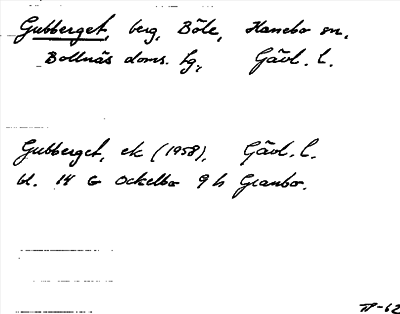 Gubberget, berg, Böle, Hanebo sn,
Bollnäs doms. lg, Gävl. l.
Gubberget, ek (1958), Gävl. l.
bl. 14 G Ockelbo 9 h Granbo.
-62